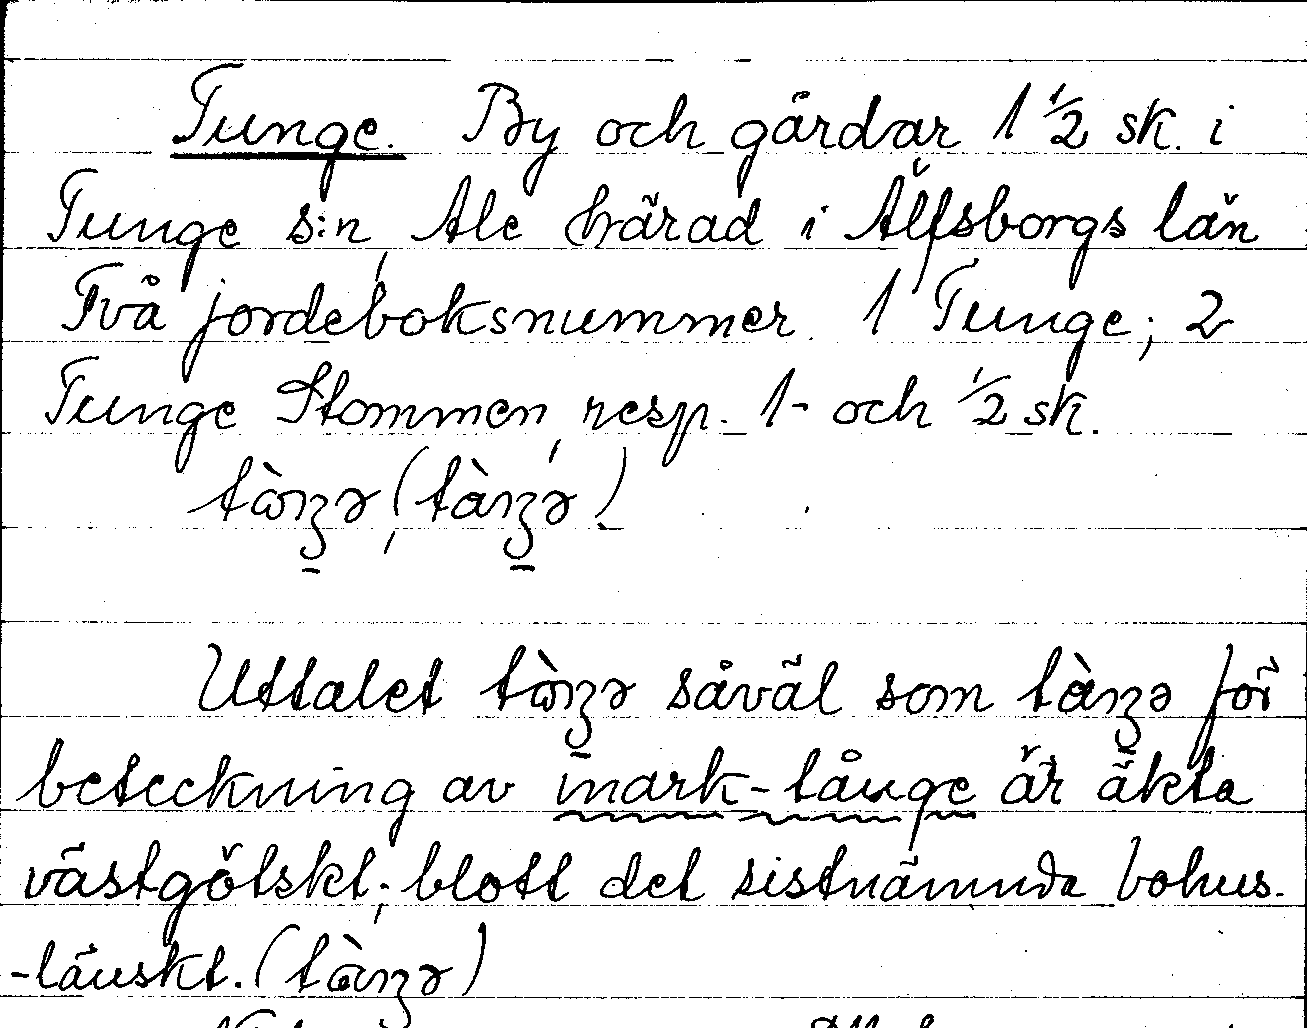 Tunge. By och gårdar 1 1/2 sk. i
Tunge s:n, Ale härad i Älfsborgs län
Två jordeboksnummer. 1 Tunge; 2
Tunge Stommen, resp. 1- och 1/2 sk.
Uttalet såväl som för
beteckning av mark-tånge är äkta
västgötskt; blott det sistnämnda bohus-
-länskt.